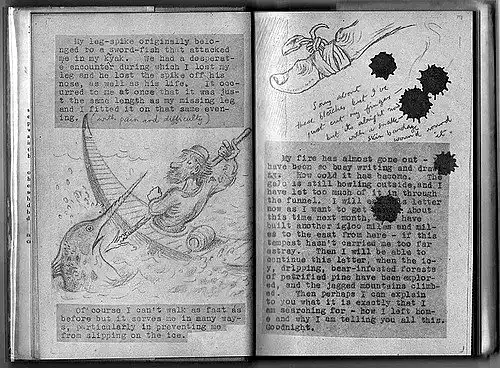 My leg-spike originally belon-
ged to a sword-fish that attacked
me in my kyak. We had a desperat-
e encounter during which I lost my
leg and he lost the spike off his
nose, as well as his life. It occ-
urred to me at once that it was ju-
st the same length as my missing leg
and I fitted it on that same even-
ing. (with pain and difficulty)
Of course I can't walk as fast as
before but it serves me in many way-
s, particularly in preventing me
from slipping on the ice.
Sorry about
these blotches but I've
just cut my finger
but its alright now
with a snake
skin bandage
wound round
it
My fire has almost gone out - I
have been so busy writing and draw-
ing. How cold it has become. The
gale is still howling outside, and I
have let too much of it in through
the funnel. I will end this letter
now as I want to get About
this time next month, I have
built another igloo miles and mil-
es to the east from here - if this
tempest hasn't carried me too far
astray. Then I will be able to
continue this letter, when the ic-
y, dripping, bear-infested forests
of petrified pine have been explor-
ed, and the jagged mountains climb-
ed. Then perhaps I can explain
to you what it is exactly that I
am searching for - how I left hom-
e and why I am telling you all this.
Goodnight.